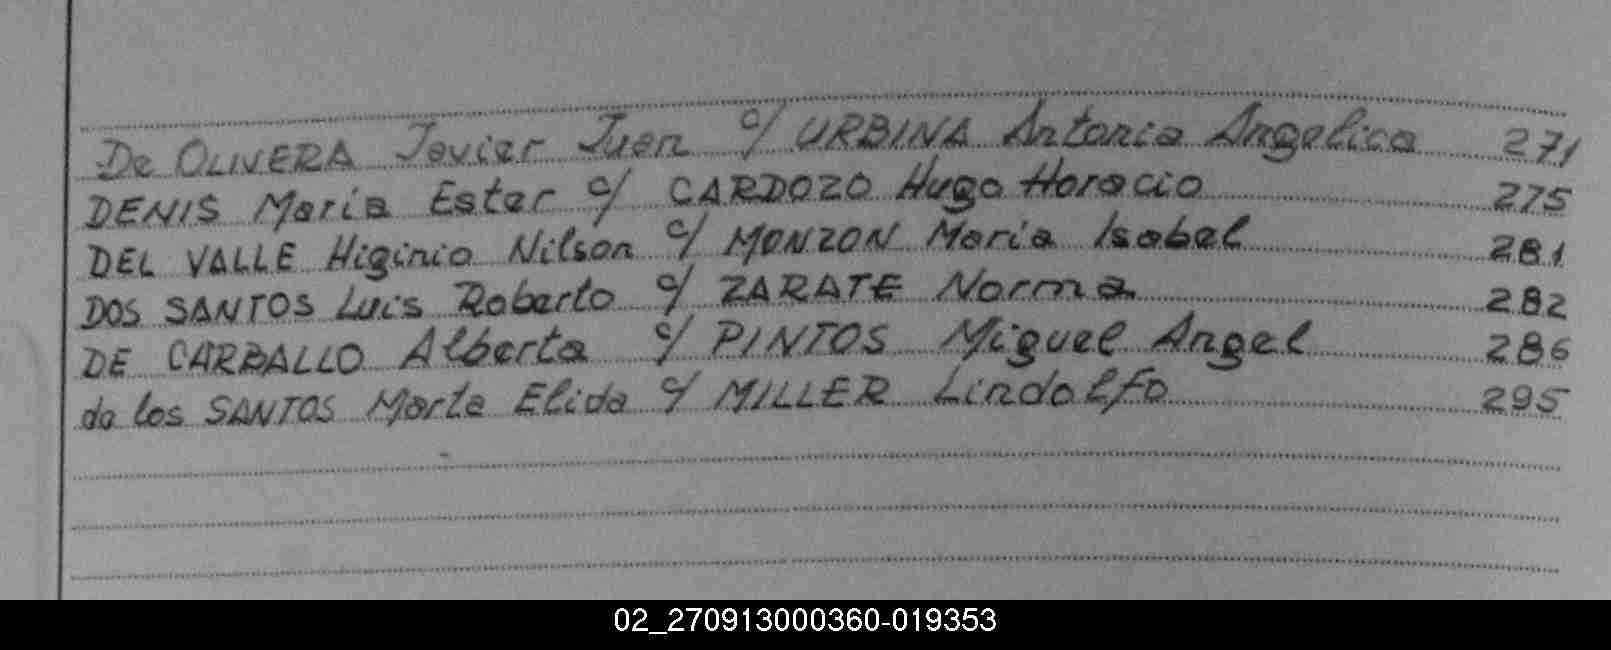 De OLIVERA Javier Juan c/ URBINA Antonia Angelica 271
DENIS Maria Ester c/ CARDOZO Hugo Horacio 275
DEL VALLE Higinio Nilson c/ MONZON Maria Isabel 281
DOS SANTOS Luis Roberto c/ ZARATE Norma 282
DE CARBALLO Alberta c/ PINTOS Miguel Angel 286
de los SANTOS Marta Elida c/ MILLER Lindolfo 295
02_270913000360-019353